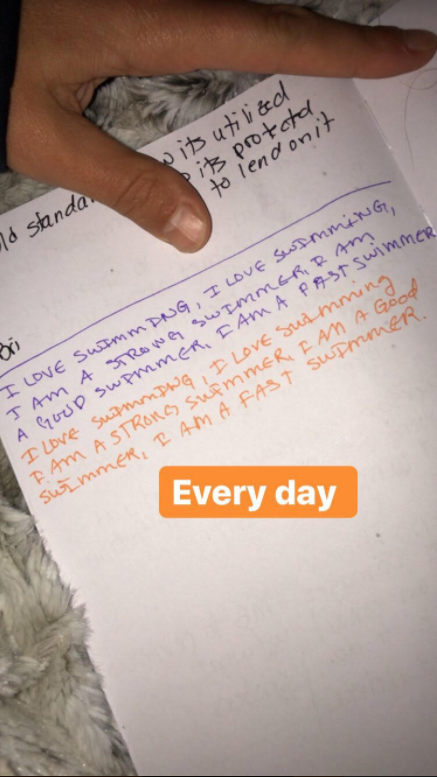 its utilized
its protctd
ld standa
to lend on it
Bri
I LOVE SWIMMING, I LOVE SWIMMING,
I AM A STRONG SWIMMER, I AM
A GOOD SWIMMER, I AM A FAST SWIMMER
I LOVE swimming, I LOVE swimming
I AM A STRONG SWIMMER, I AM A GOOD
SWIMMER, I AM A FAST SWIMMER.
Every day